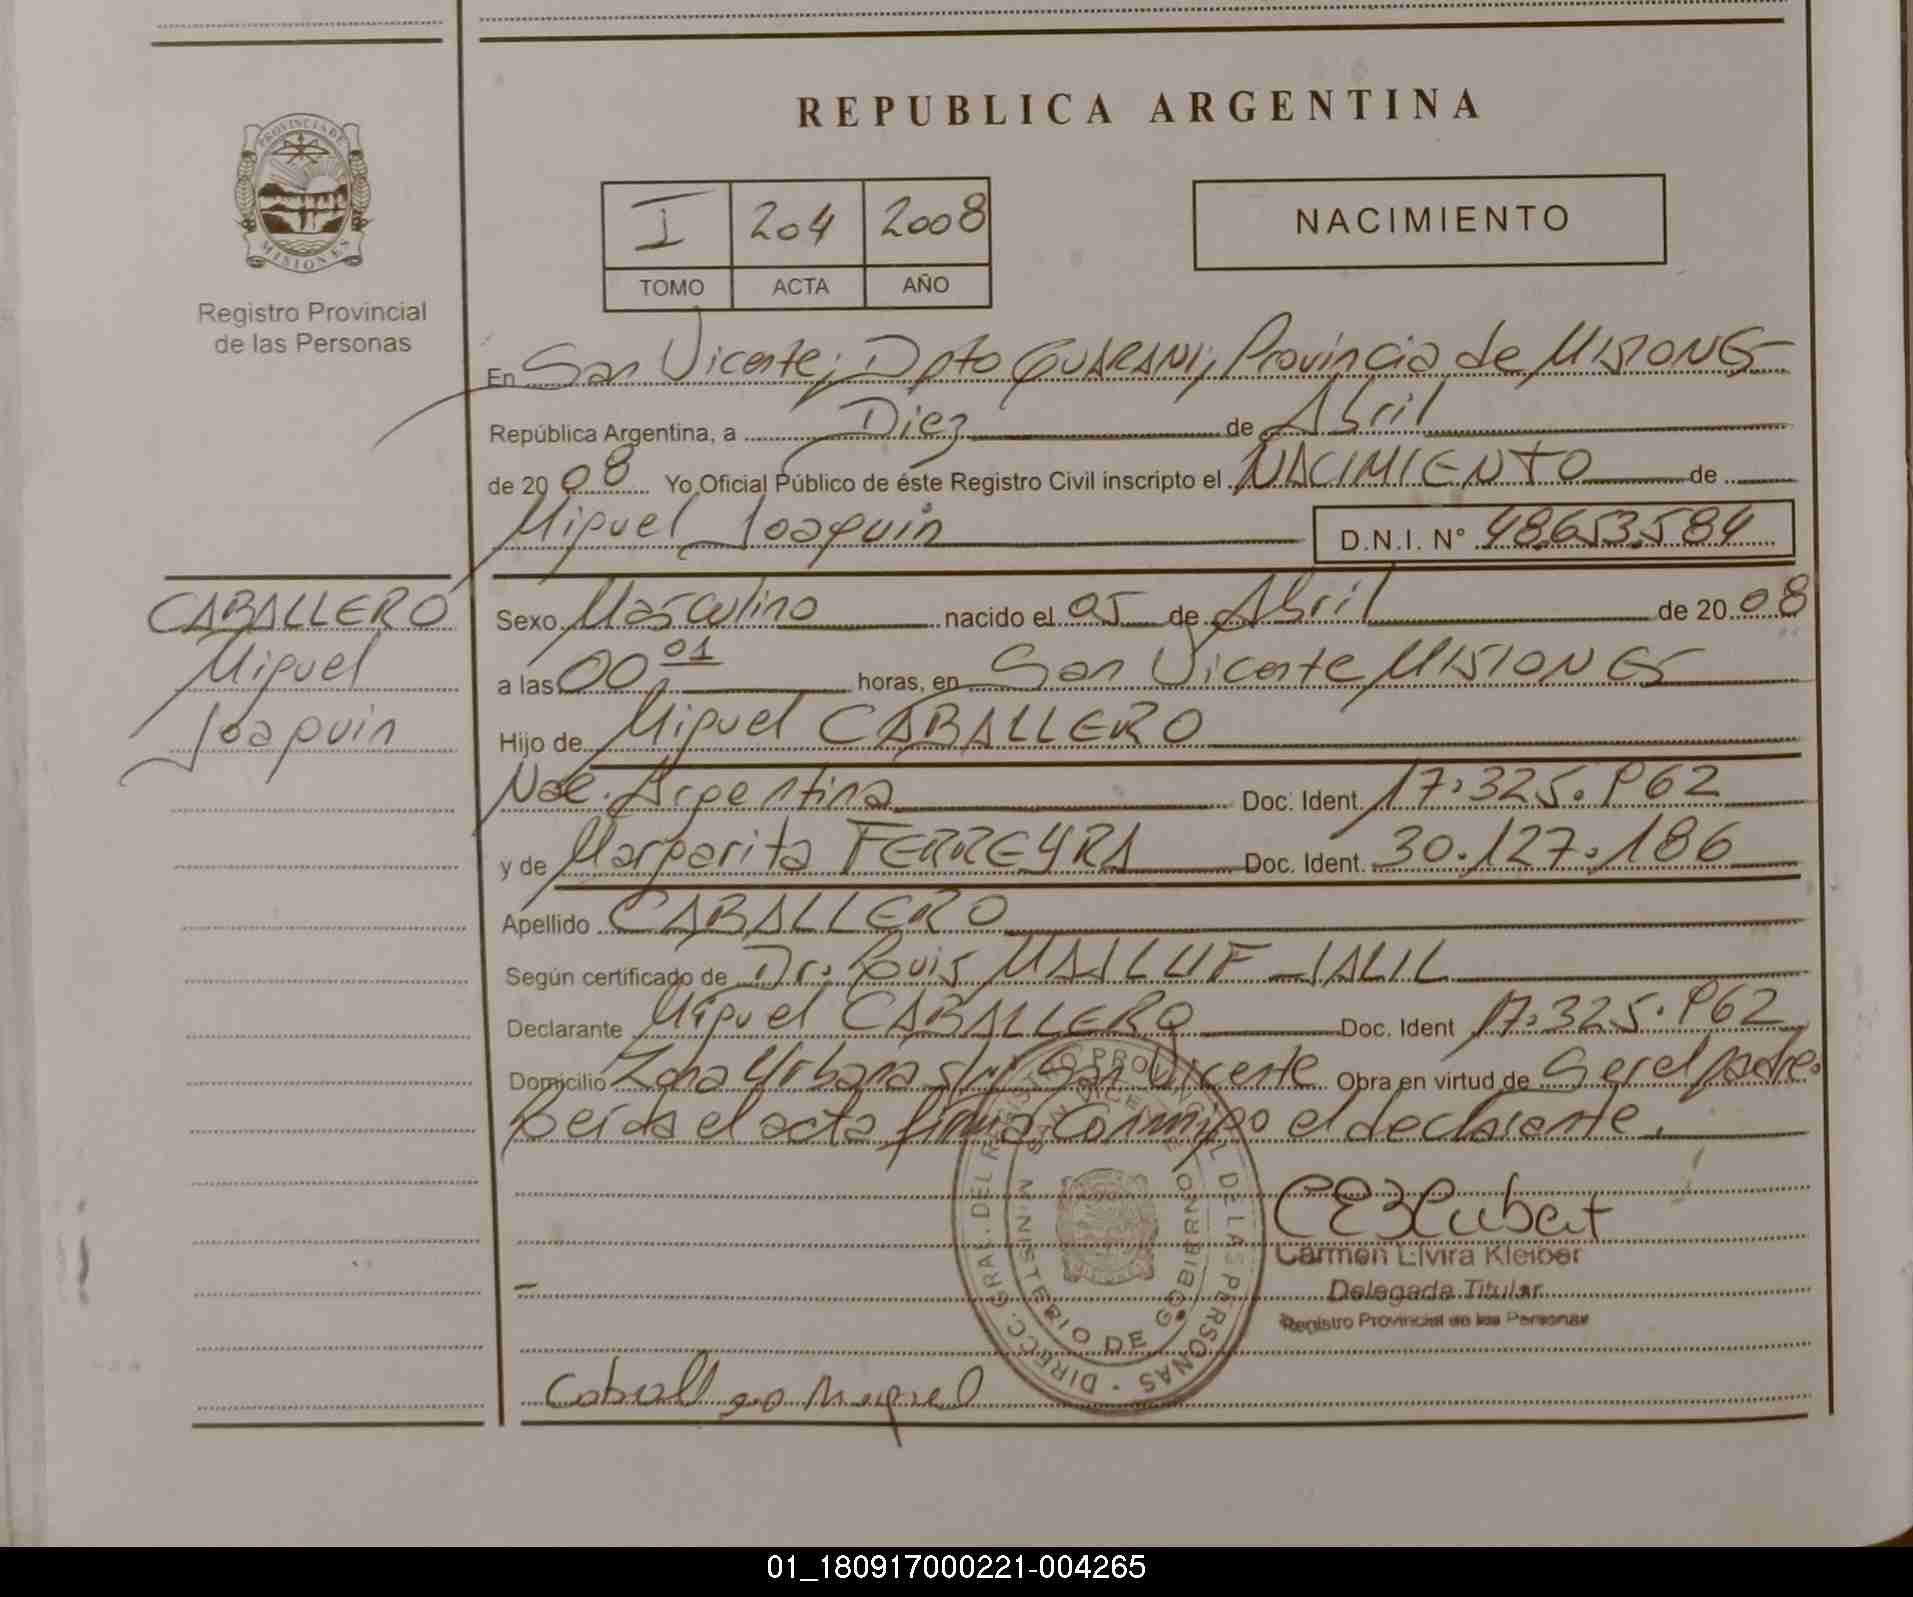 REPUBLICA ARGENTINA
PROVINCIA DE
MISIONES
Registro Provincial
de las Personas
I 204 2008
TOMO ACTA AÑO
NACIMIENTO
En San Vicente; Dpto GUARANI; Provincia de MISIONES
República Argentina, a Diez de Abril
de 2008 Yo Oficial Público de éste Registro Civil inscripto el NACIMIENTO de
Miguel Joaquin D.N.I. N° 48.653.584
CABALLERO
Miguel
Joaquin
Sexo Masculino nacido el 05 de Abril de 2008
a las 00 01 horas, en San Vicente MISIONES
Hijo de Miguel CABALLERO
Nac. Argentina Doc. Ident. 17.325.962
y de Margarita FERREYRA Doc. Ident. 30.127.186
Apellido CABALLERO
Según certificado de Dr. Louis MAALUF JALIL
Declarante Miguel CABALLERO Doc. Ident 17.325.962
Domicilio Zona Urbana s/n San Vicente Obra en virtud de Ser el padre.
Leída el acta firma conmigo el declarante.
DIRECC. GRAL. DEL REGISTRO PROVINCIAL DE LAS PERSONAS
SAN VICENTE
MINISTERIO DE GOBIERNO
Carmen Elvira Kleiber
Delegada Titular
Registro Provincial de las Personas
Caballero Miguel
01_180917000221-004265